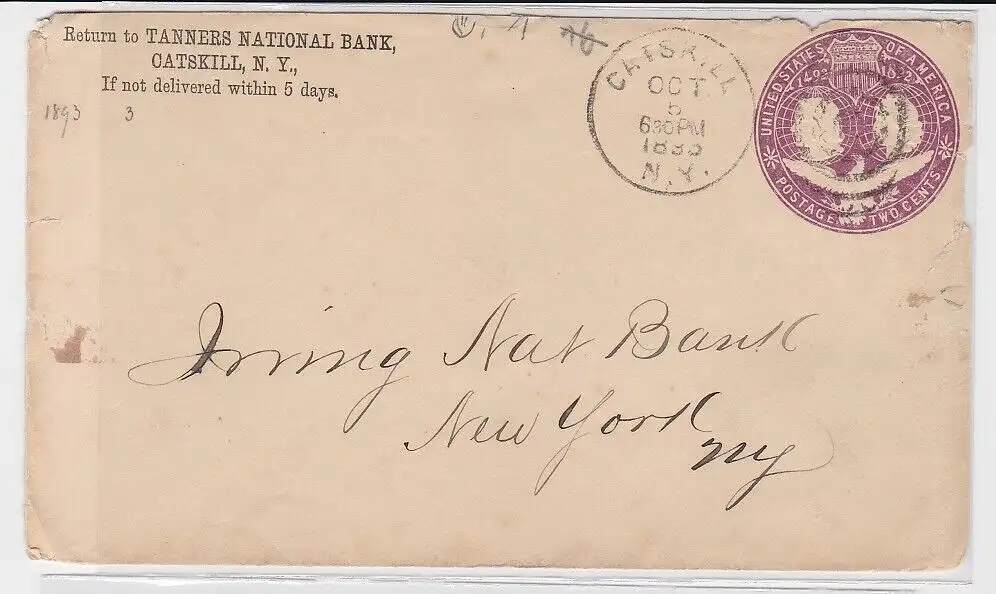 Return to TANNERS NATIONAL BANK,
CATSKILL, N. Y.,
If not delivered within 5 days.
1893 3
CATSKILL
OCT
5
630PM
1893
N.Y.
UNITED STATES OF AMERICA
1492 1892
POSTAGE TWO CENTS
Irving Nat Bank
New York
NY